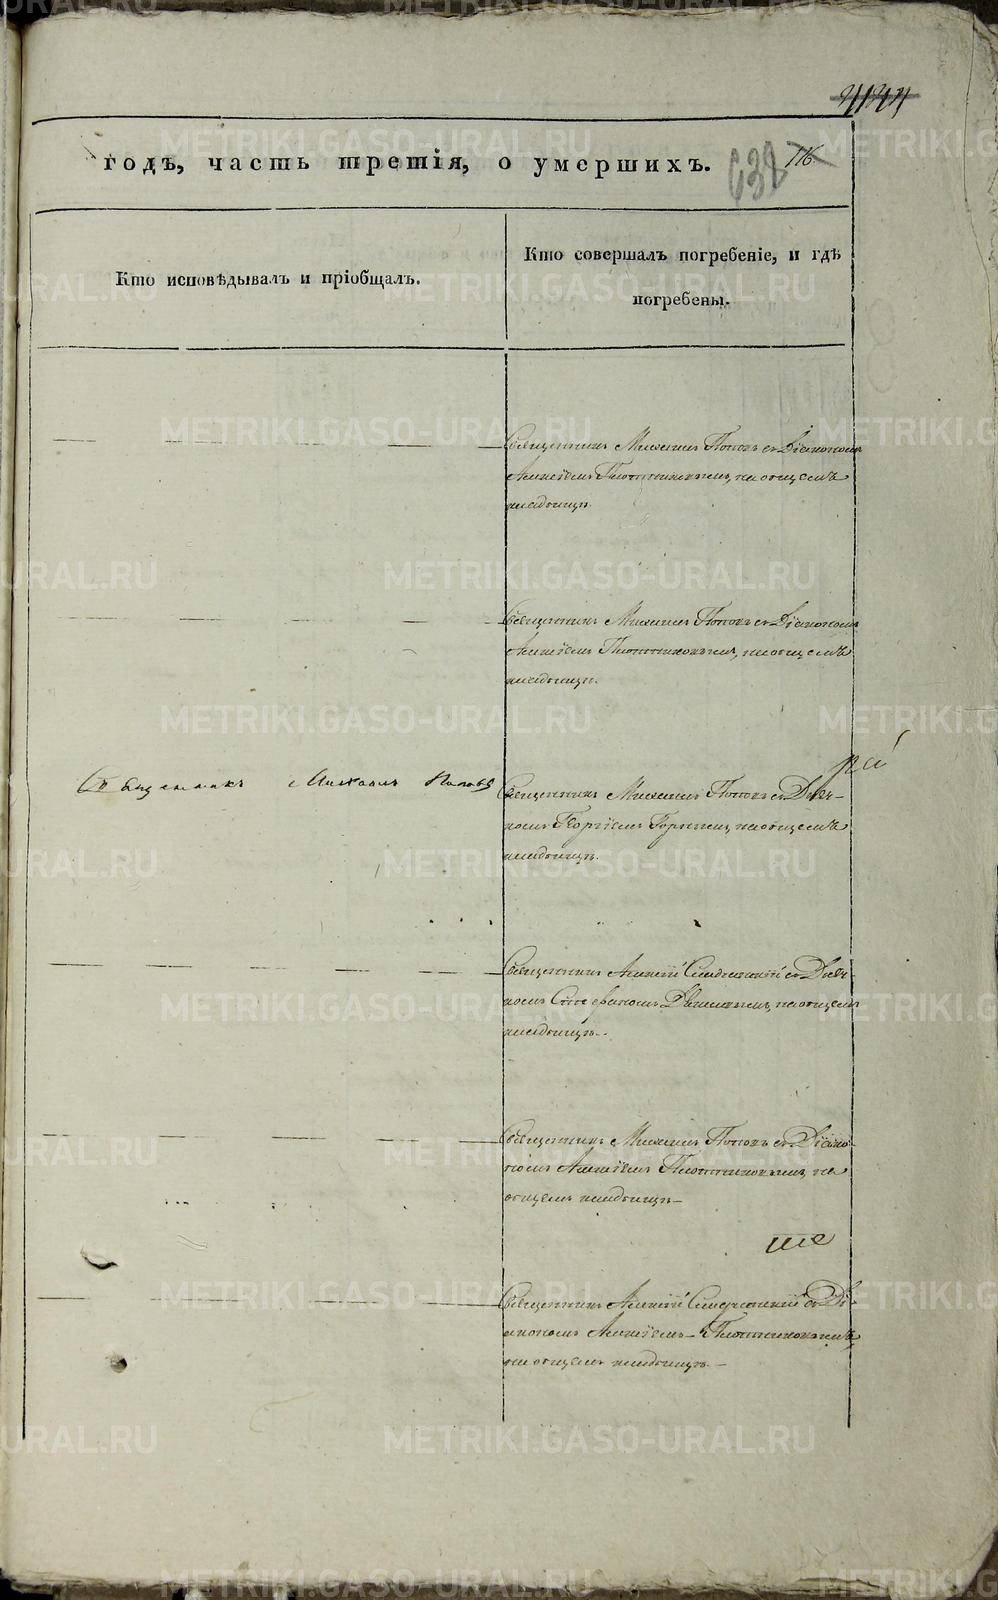 4144
годъ, часть третія, о умершихъ.
638 116
Кто исповѣдывалъ и пріобщалъ.
Кто совершалъ погребеніе, и гдѣ
погребены.
Священникъ Михаилъ Поповъ съ Діакономъ
Алексіемъ Плотниковымъ, на общемъ
кладбищѣ.
Священникъ Михаилъ Поповъ съ Діакономъ
Алексіемъ Плотниковымъ, на общемъ
кладбищѣ.
Священникъ Михаилъ Поповъ
Священникъ Михаилъ Поповъ съ Дьяч-
комъ Георгіемъ на общемъ
кладбищѣ.
Священникъ Алексій съ Дьяч-
комъ Стефаномъ на общемъ
кладбищѣ.
Священникъ Михаилъ Поповъ съ Діако-
номъ Алексіемъ Плотниковымъ, на
общемъ кладбищѣ
Священникъ Алексій съ Ді-
акономъ Алексіемъ Плотниковымъ,
на общемъ кладбищѣ.
METRIKI.GASO-URAL.RU